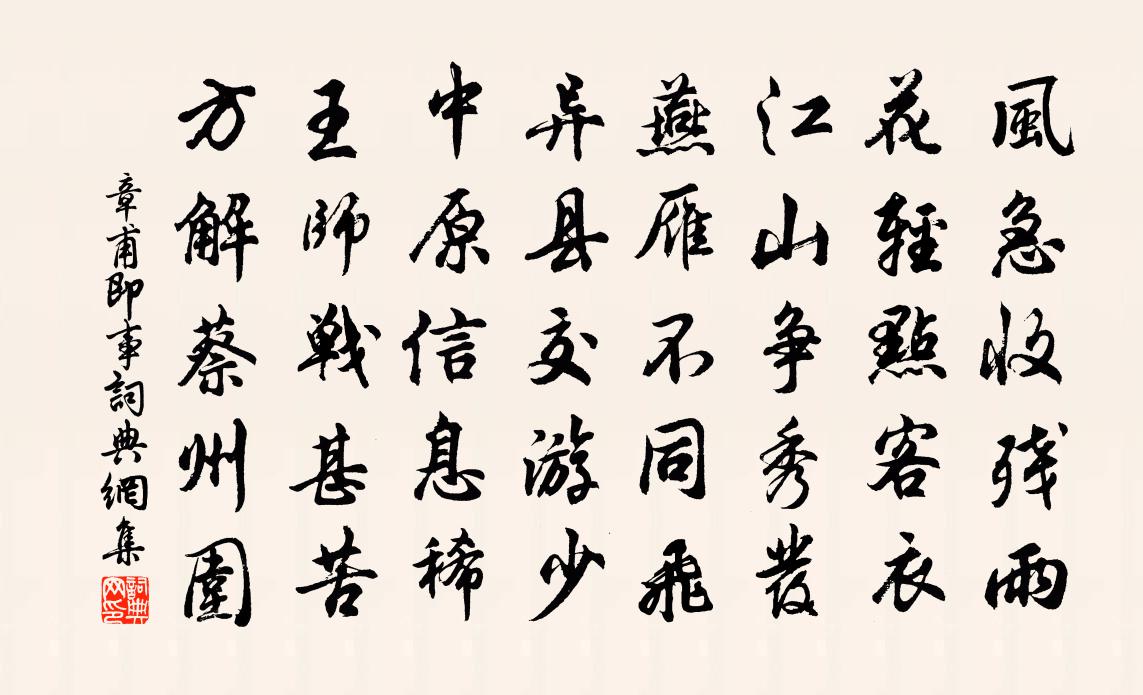 風急收残雨
花輕點客衣
江山争秀發
燕雁不同飛
异县交游少
中原信息稀
王師戰甚苦
方解蔡州圍
章甫即事詞典網集
詞典網印